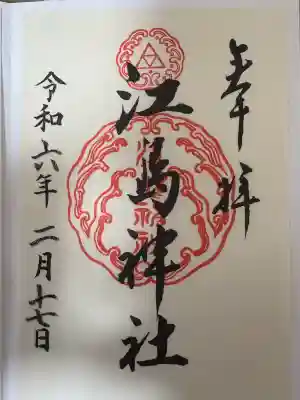 奉拝
江島神社
令和六年 二月十七日